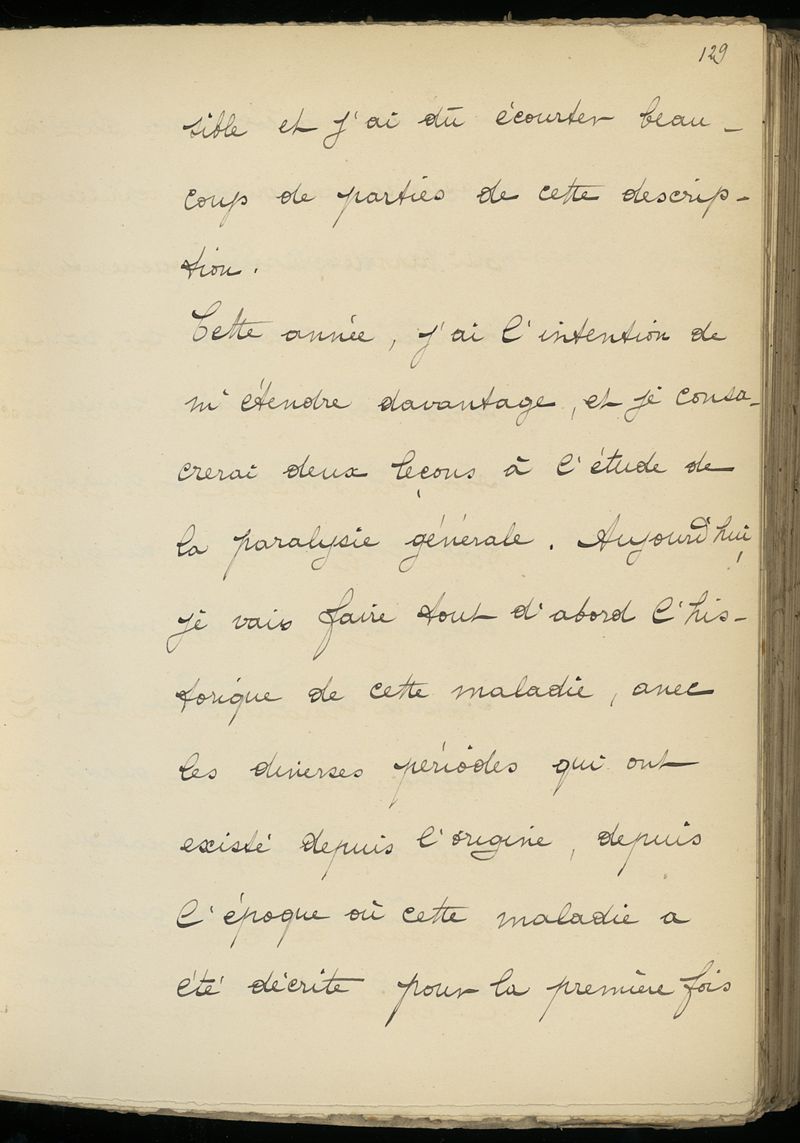 129
sible et j'ai dû écourter beau-
coup de parties de cette descrip-
tion.
Cette année, j'ai l'intention de
m'étendre davantage, et je consa-
crerai deux leçons à l'étude de
la paralysie générale. Aujourd'hui,
je vais faire tout d'abord l'his-
torique de cette maladie, avec
les diverses périodes qui ont
existé depuis l'origine, depuis
l'époque où cette maladie a
été décrite pour la première fois